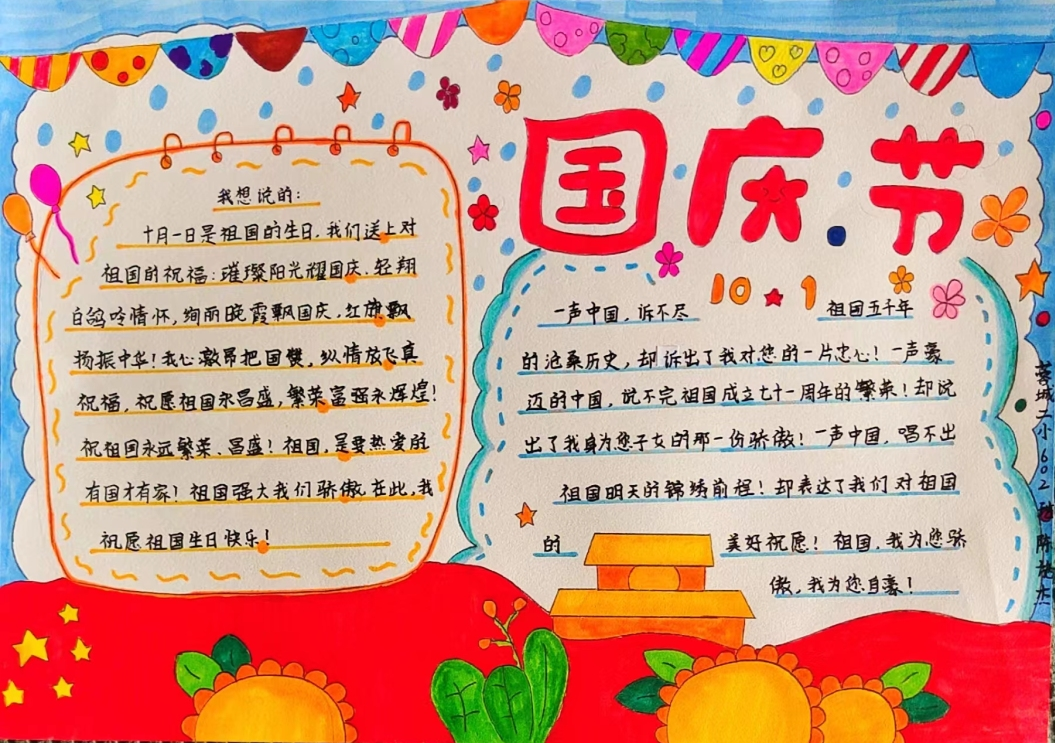 国庆节
10 1
我想说的:
十月一日是祖国的生日,我们送上对
祖国的祝福:璀璨阳光耀国庆,轻翔
白鸽吟情怀,绚丽晚霞飘国庆,红旗飘
扬振中华!我心激昂把国赞,纵情放飞真
祝福,祝愿祖国永昌盛,繁荣富强永辉煌!
祝祖国永远繁荣、昌盛!祖国,是要热爱的
有国才有家!祖国强大我们骄傲在此,我
祝愿祖国生日快乐!
一声中国,诉不尽 祖国五千年
的沧桑历史,却诉出了我对您的一片忠心!一声豪
迈的中国,说不完祖国成立七十一周年的繁荣!却说
出了我身为您子女的那一份骄傲!一声中国,唱不出
祖国明天的锦绣前程!却表达了我们对祖国
的 美好祝愿!祖国,我为您骄
傲,我为您自豪!
蓉城二小602 陈 杰